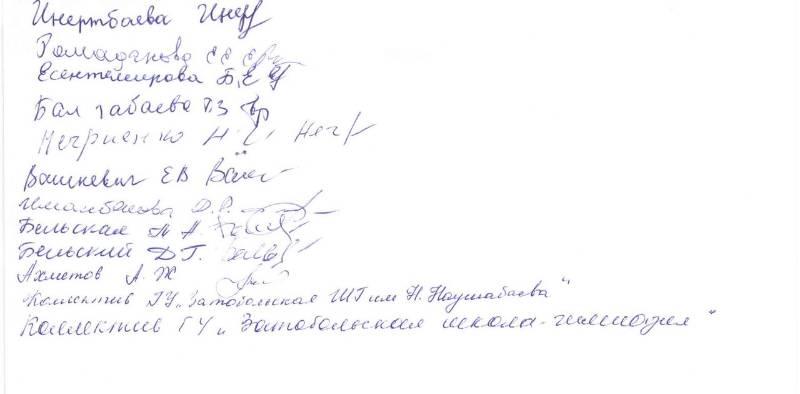 Инертбаева Инер
Ромадзнова Е Е
Есентемирова Б,Е
Балгабаева Г.З
Нечриенко Н Неч
Вашкевич ЕВ Ваш
Иманбаева Д.Р.
Бельская Н А.
Бельский ДГ. Бельс
Ахметов А. Ж
Коллектив ГУ „Затобольская ШГ им Н. Наушабаева"
Коллектив ГУ „Затобольская школа-гимназия"